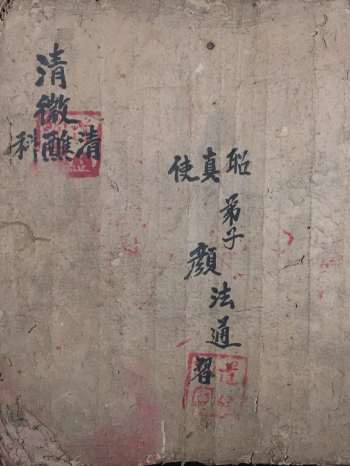 清微
清醮科
真使
弟子
顏法通
習